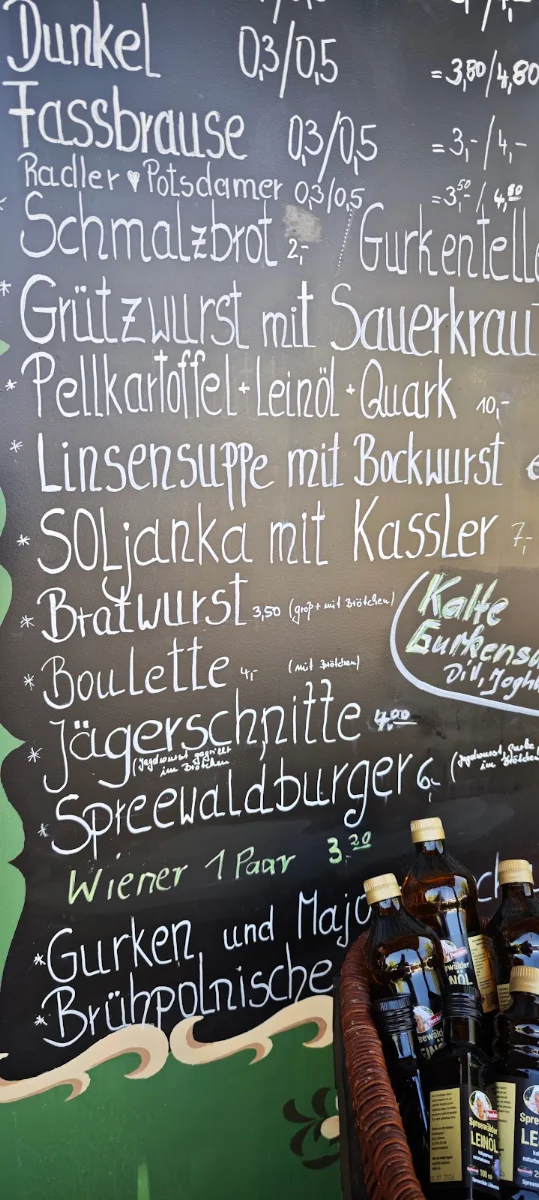 Dunkel 0,3/0,5 =3,80/4,80
Fassbrause 0,3/0,5 =3,-/4,-
Radler ♥ Potsdamer 0,3/0,5 =3,50/4,80
Schmalzbrot 2,- / Gurkentelle
* Grützwurst mit Sauerkraut
* Pellkartoffel + Leinöl + Quark 10,-
* Linsensuppe mit Bockwurst
* SOLjanka mit Kassler 7,-
* Bratwurst 3,50 (groß + mit Brötchen)
Kalte
Gurkensu
Dill, Jogh
* Boulette 4,- (mit Brötchen)
* Jägerschnitte 4,00
(Jagdwurst gegrillt
im Brötchen
* Spreewaldburger 6,- (Jagdwurst, Gurke
im Brötchen
Wiener 1 Paar 3.20
* Gurken und Majo ch
* Brühpolnische
NÖL
Spreewälder
LEINÖL
Spre
LE